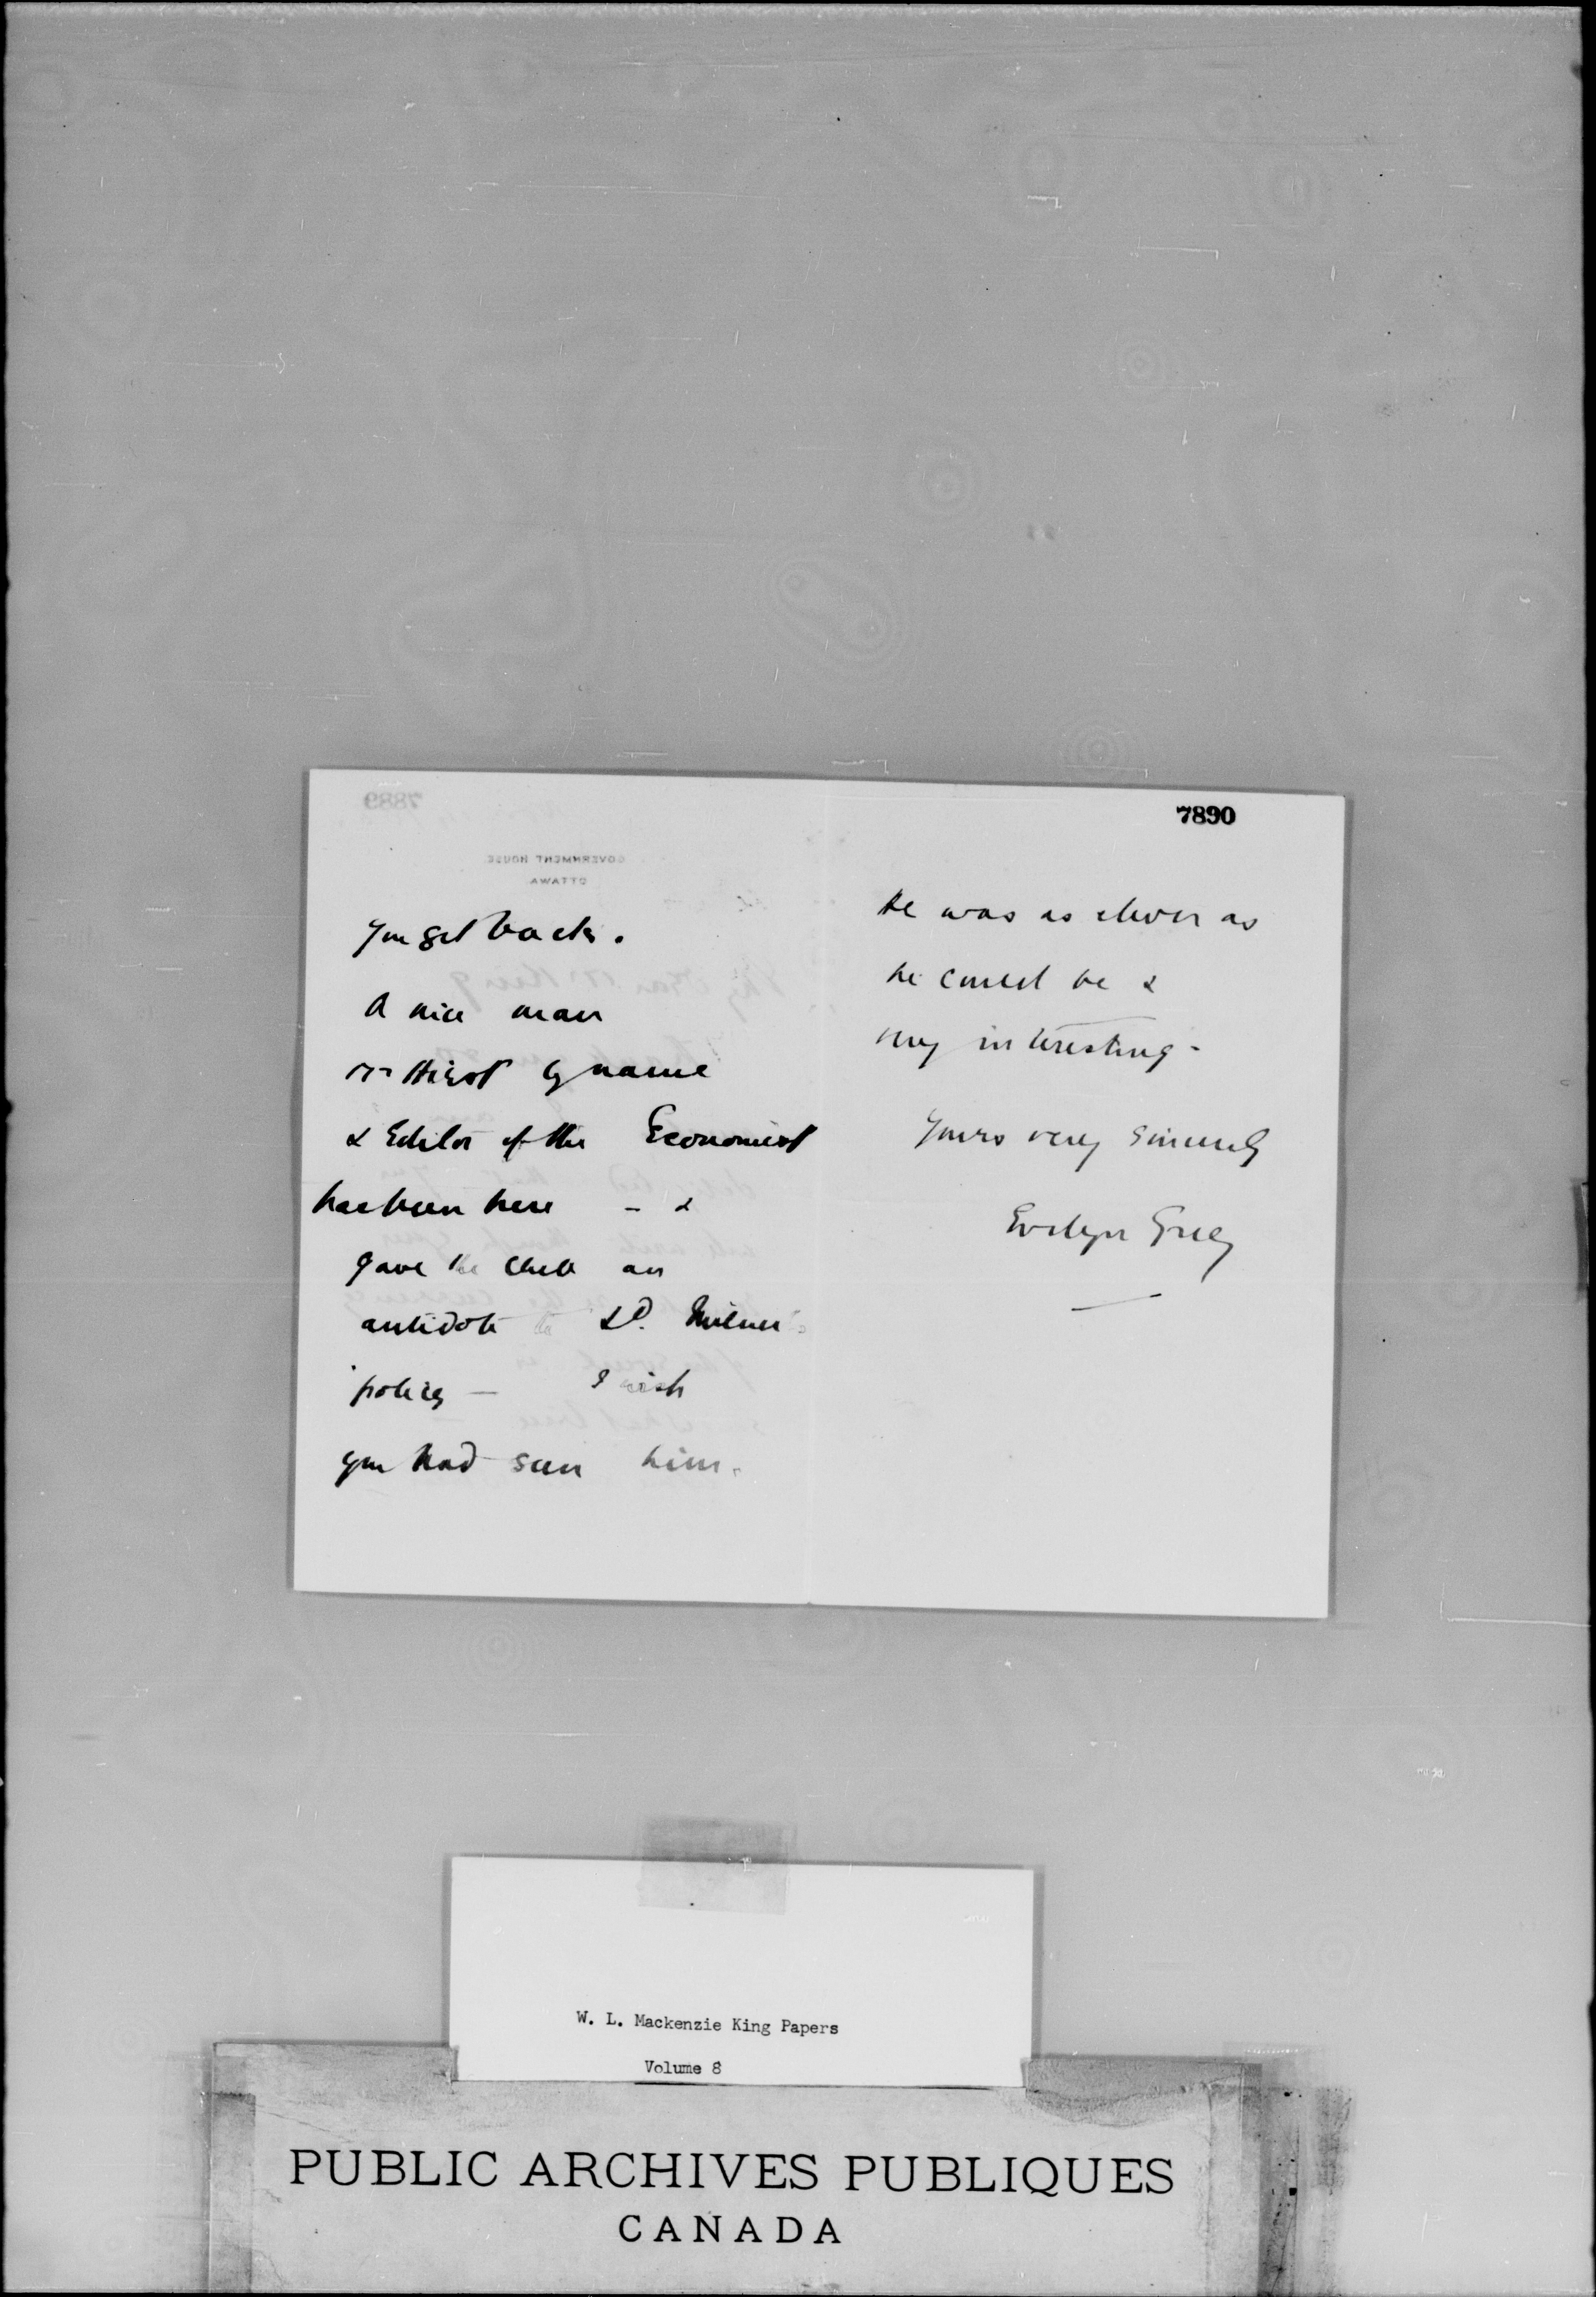 7890
you get back.
A nice man
Mr Hirst by name
& Editor of the Economist
has been here - &
gave the Club an
antidote to Ld. Milner's
policy - I wish
you had seen him.
He was as clever as
he could be &
very interesting -
Yours very sincerely
Evelyn Grey
W. L. Mackenzie King Papers
Volume 8
PUBLIC ARCHIVES PUBLIQUES
CANADA